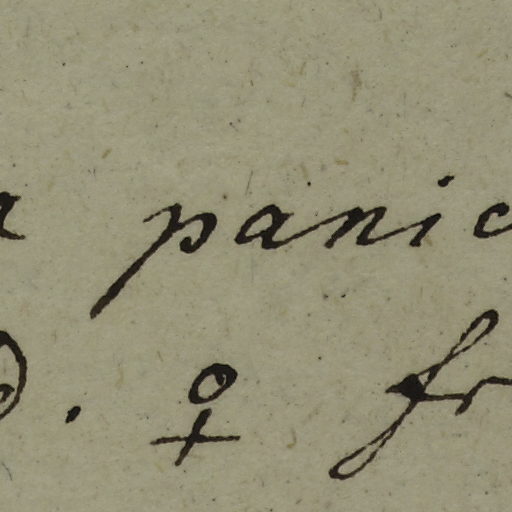 a panic
. ♀ fr